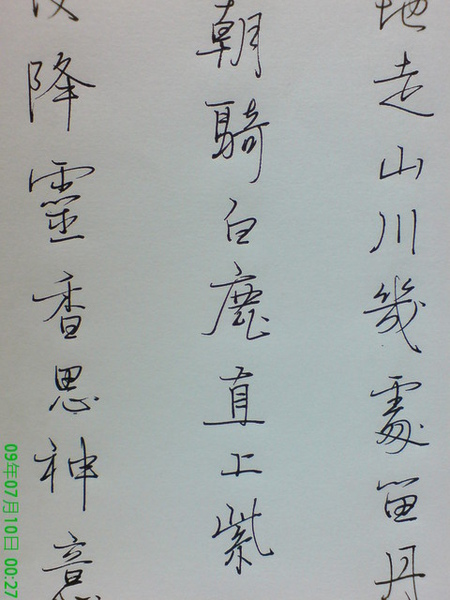 地走山川幾處留丹
朝騎白鹿直上紫
降靈香思神意
09年07月10日 00:27